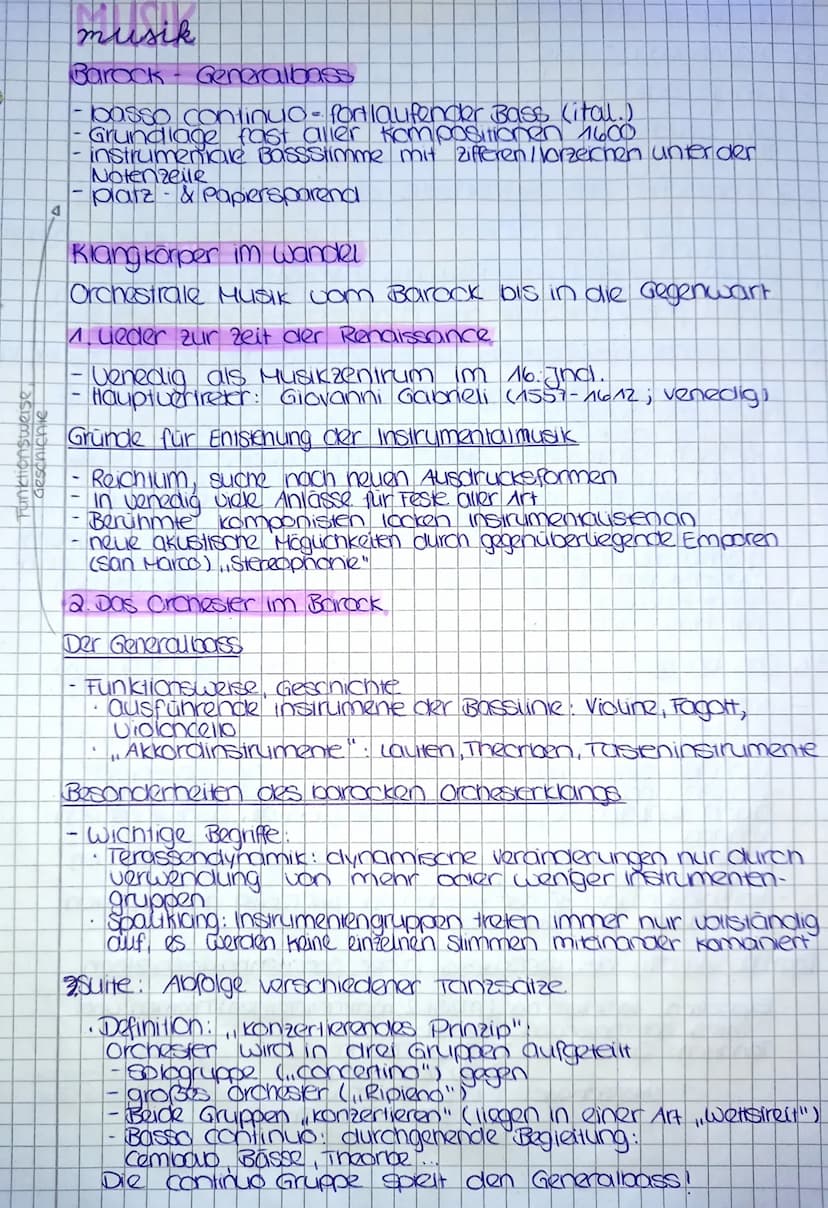 MUSIK
musik
Barock - Generalbass
- basso continuo = fortlaufender Bass (ital.)
- Grundlage fast aller Kompositionen 1600
- instrumentale Bassstimme mit Zifferen/Vorzeichen unter der
Notenzeile
- platz - & Papersparend
Klangkörper im Wandel
Orchestrale Musik vom Barock bis in die Gegenwart
1. Lieder zur Zeit der Renaissance
- Venedig als Musikzentrum im 16. Jhd.
- Hauptvertreter: Giovanni Gabrieli (1557-1612; Venedig)
Gründe für Entstehung der Instrumentalmusik
- Reichtum, suche nach neuen Ausdrucksformen
- In Venedig viele Anlässe für Feste aller Art
- Berühmte Komponisten locken Instrumentalisten an
- neue akustische Möglichkeiten durch gegenüberliegende Emporen
(San Marco) „Stereophonie"
2. Das Orchester im Barock
Der Generalbass
- Funktionsweise, Geschichte
· ausführende instrumene der Basslinie: Violine, Fagott,
Violoncello
· „Akkordinstrumente": Lauten, Theorben, Tasteninstrumente
Besonderheiten des barocken Orchesterklangs
- Wichtige Begriffe:
· Terassendynamik: dynamische veränderungen nur durch
verwendung von mehr oder weniger instrumenten-
gruppen
· Spaltklang: Instrumentengruppen treten immer nur vollständig
auf, es werden keine einzelnen Stimmen miteinander komaniert
Suite: Abfolge verschiedener Tanzsätze
· Definition: „konzertierendes Prinzip":
Orchester wird in drei Gruppen aufgeteilt
- Sologruppe („concertino") gegen
- großes Orchester („Ripieno")
- Beide Gruppen „konzertieren" (liegen in einer Art „Wettstreit")
- Basso continuo: durchgehende Begleitung:
Cembalo, Bässe, Theorbe ...
Die continuo Gruppe spielt den Generalbass!
Funktionsweise,
Geschichte